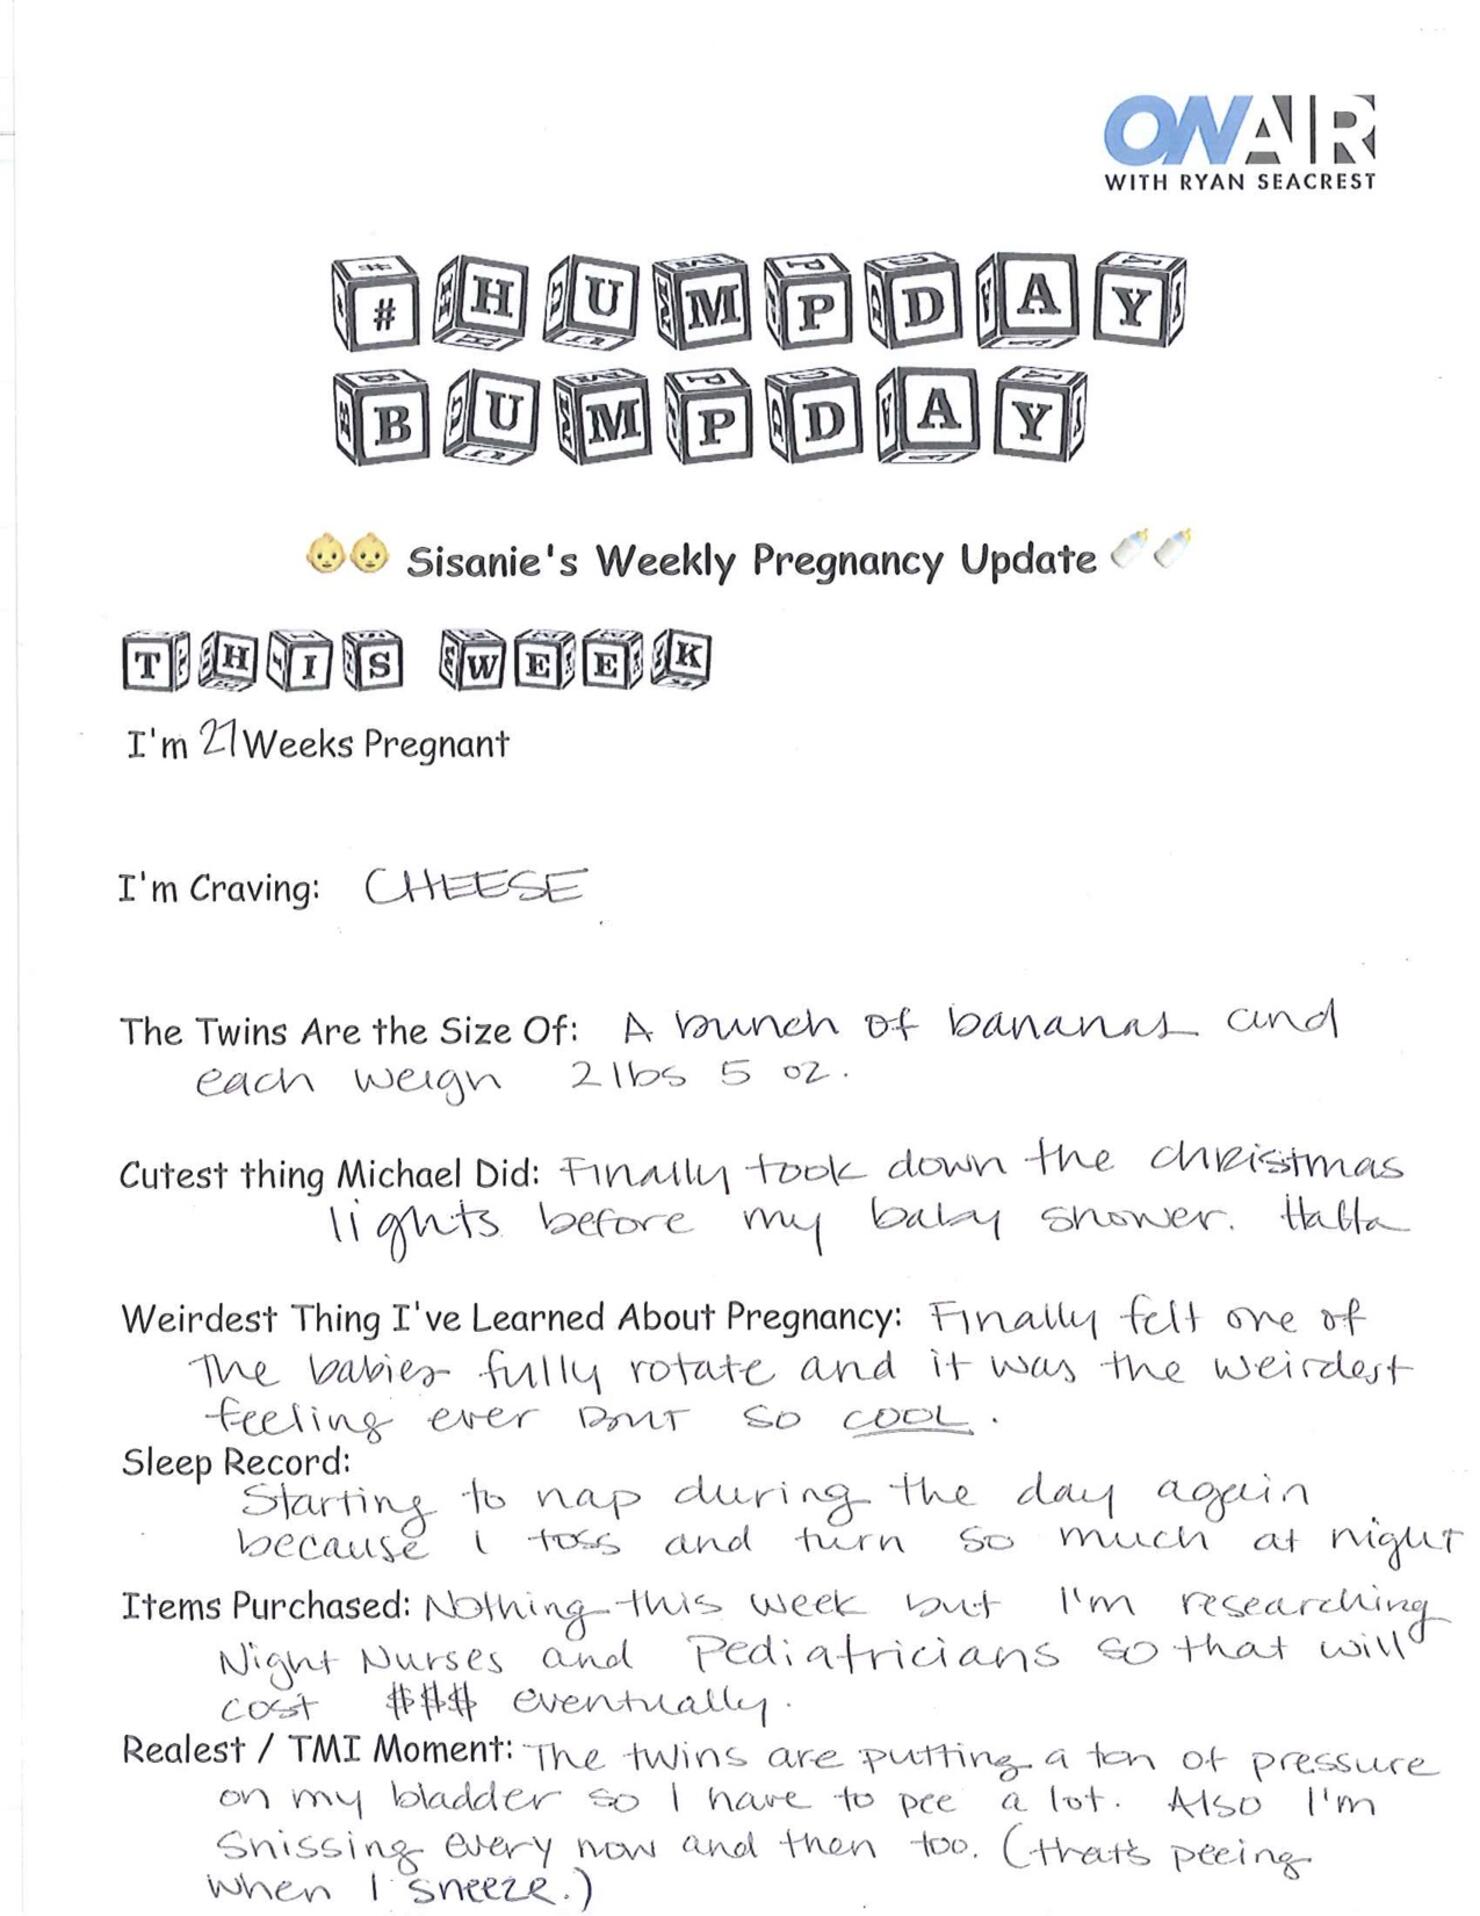 ONAIR
WITH RYAN SEACREST
#HUMPDAY
BUMPDAY
👶👶 Sisanie's Weekly Pregnancy Update 🍼🍼
THIS WEEK
I'm 27 Weeks Pregnant
I'm Craving: CHEESE
The Twins Are the Size Of: A bunch of bananas and
each weigh 2 lbs 5 oz.
Cutest thing Michael Did: Finally took down the christmas
lights before my baby shower. Haha
Weirdest Thing I've Learned About Pregnancy: Finally felt one of
the babies fully rotate and it was the weirdest
feeling ever BUT so COOL.
Sleep Record:
Starting to nap during the day again
because I toss and turn so much at night
Items Purchased: Nothing this week but I'm researching
Night Nurses and Pediatricians so that will
cost $$$ eventually.
Realest / TMI Moment: The twins are putting a ton of pressure
on my bladder so I have to pee a lot. Also I'm
Snissing every now and then too. (that's peeing
when I sneeze.)